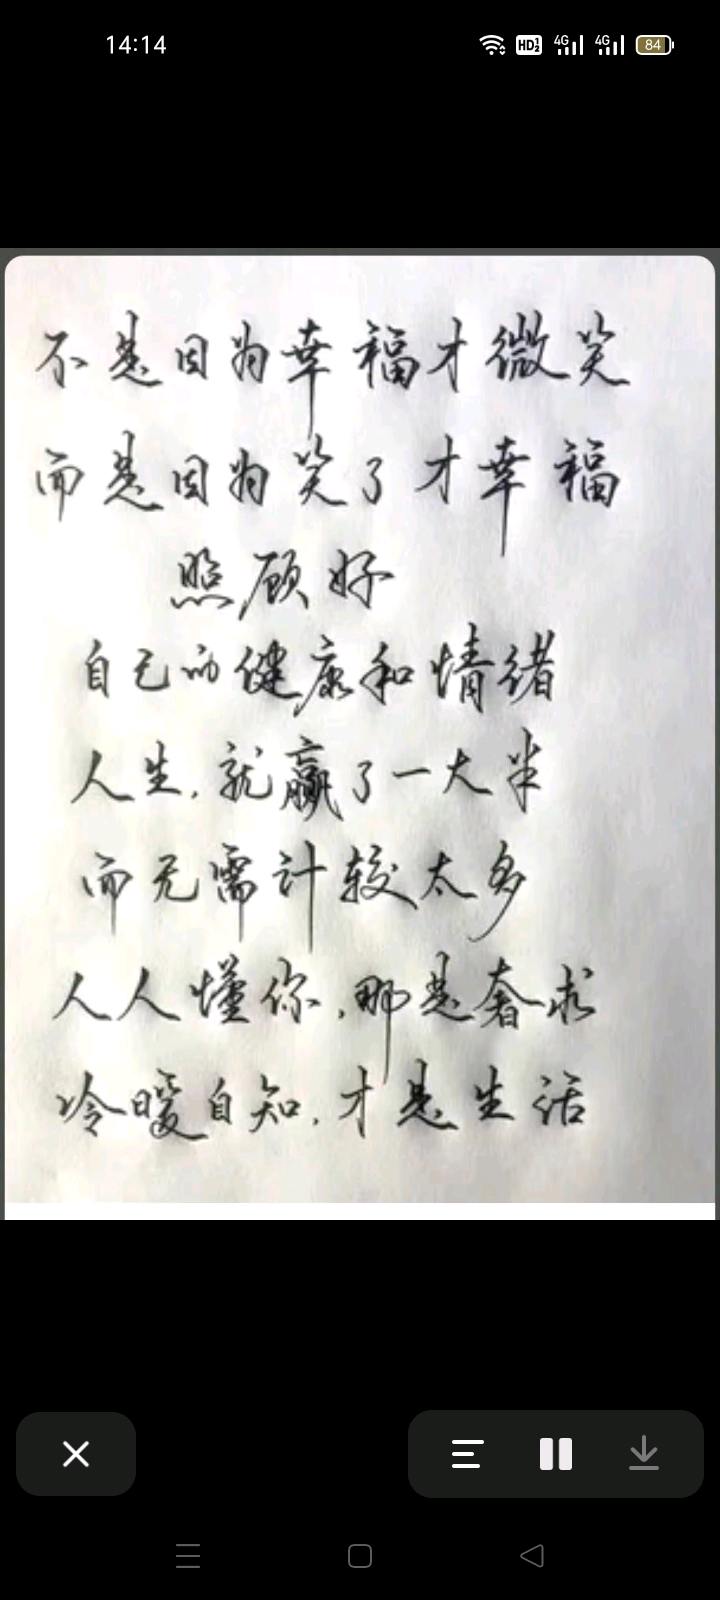 14:14
HD 4G 4G 84
不是因为幸福才微笑
而是因为笑了才幸福
照顾好
自己的健康和情绪
人生,就赢了一大半
而无需计较太多
人人懂你,那是奢求
冷暖自知,才是生活